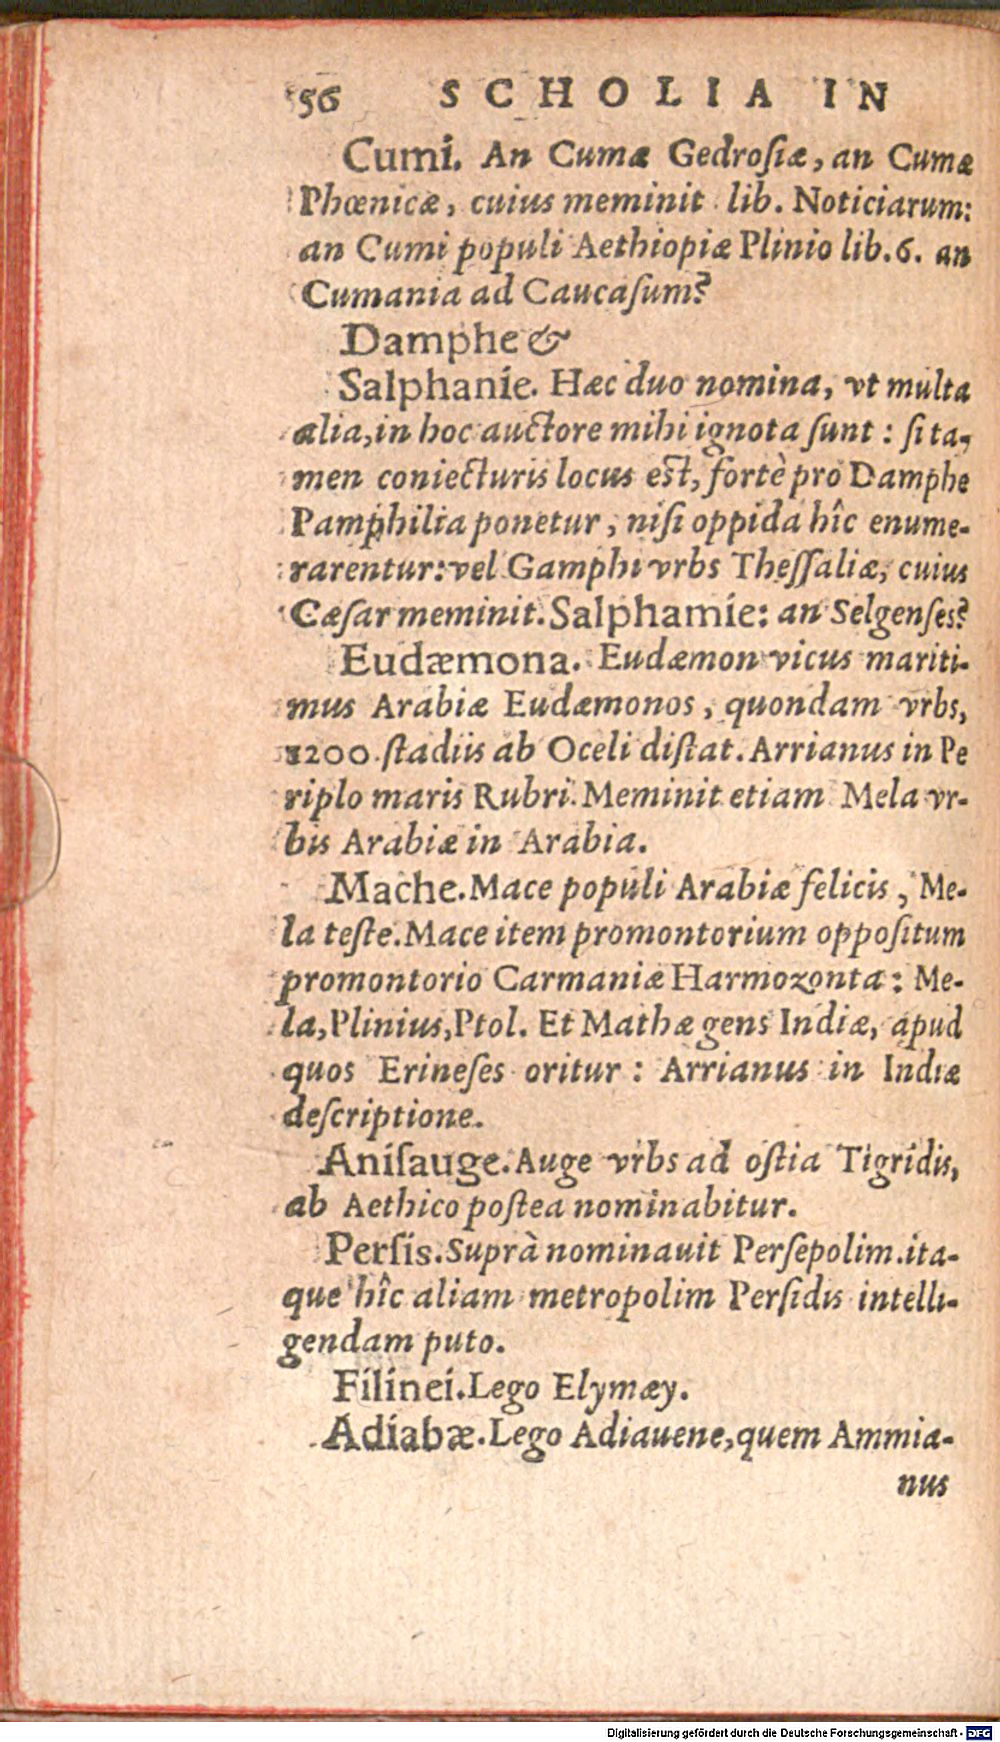 56 SCHOLIA IN
Cumi. An Cumæ Gedrosiæ, an Cumæ
Phœnicæ, cuius meminit lib. Noticiarum:
an Cumi populi Aethiopiæ Plinio lib.6. an
Cumania ad Caucasum?
Damphe &
Salphanie. Hæc duo nomina, vt multa
alia, in hoc auctore mihi ignota sunt: si ta-
men coniecturis locus est, fortè pro Damphe
Pamphilia ponetur, nisi oppida hîc enume-
rarentur: vel Gamphi vrbs Thessaliæ, cuius
Cæsar meminit. Salphamie: an Selgenses?
Eudæmona. Eudæmon vicus mariti-
mus Arabiæ Eudæmonos, quondam vrbs,
1200 stadiis ab Oceli distat. Arrianus in Pe
riplo maris Rubri. Meminit etiam Mela vr-
bis Arabiæ in Arabia.
Mache. Mace populi Arabiæ felicis, Me-
la teste. Mace item promontorium oppositum
promontorio Carmaniæ Harmozonta: Me-
la, Plinius, Ptol. Et Mathæ gens Indiæ, apud
quos Erineses oritur: Arrianus in Indiæ
descriptione.
Anisauge. Auge vrbs ad ostia Tigridis,
ab Aethico postea nominabitur.
Persis. Suprà nominauit Persepolim. ita-
que hîc aliam metropolim Persidis intelli-
gendam puto.
Filinei. Lego Elymæy.
Adiabæ. Lego Adiauene, quem Ammia-
nus
Digitalisierung gefördert durch die Deutsche Forschungsgemeinschaft - DFG